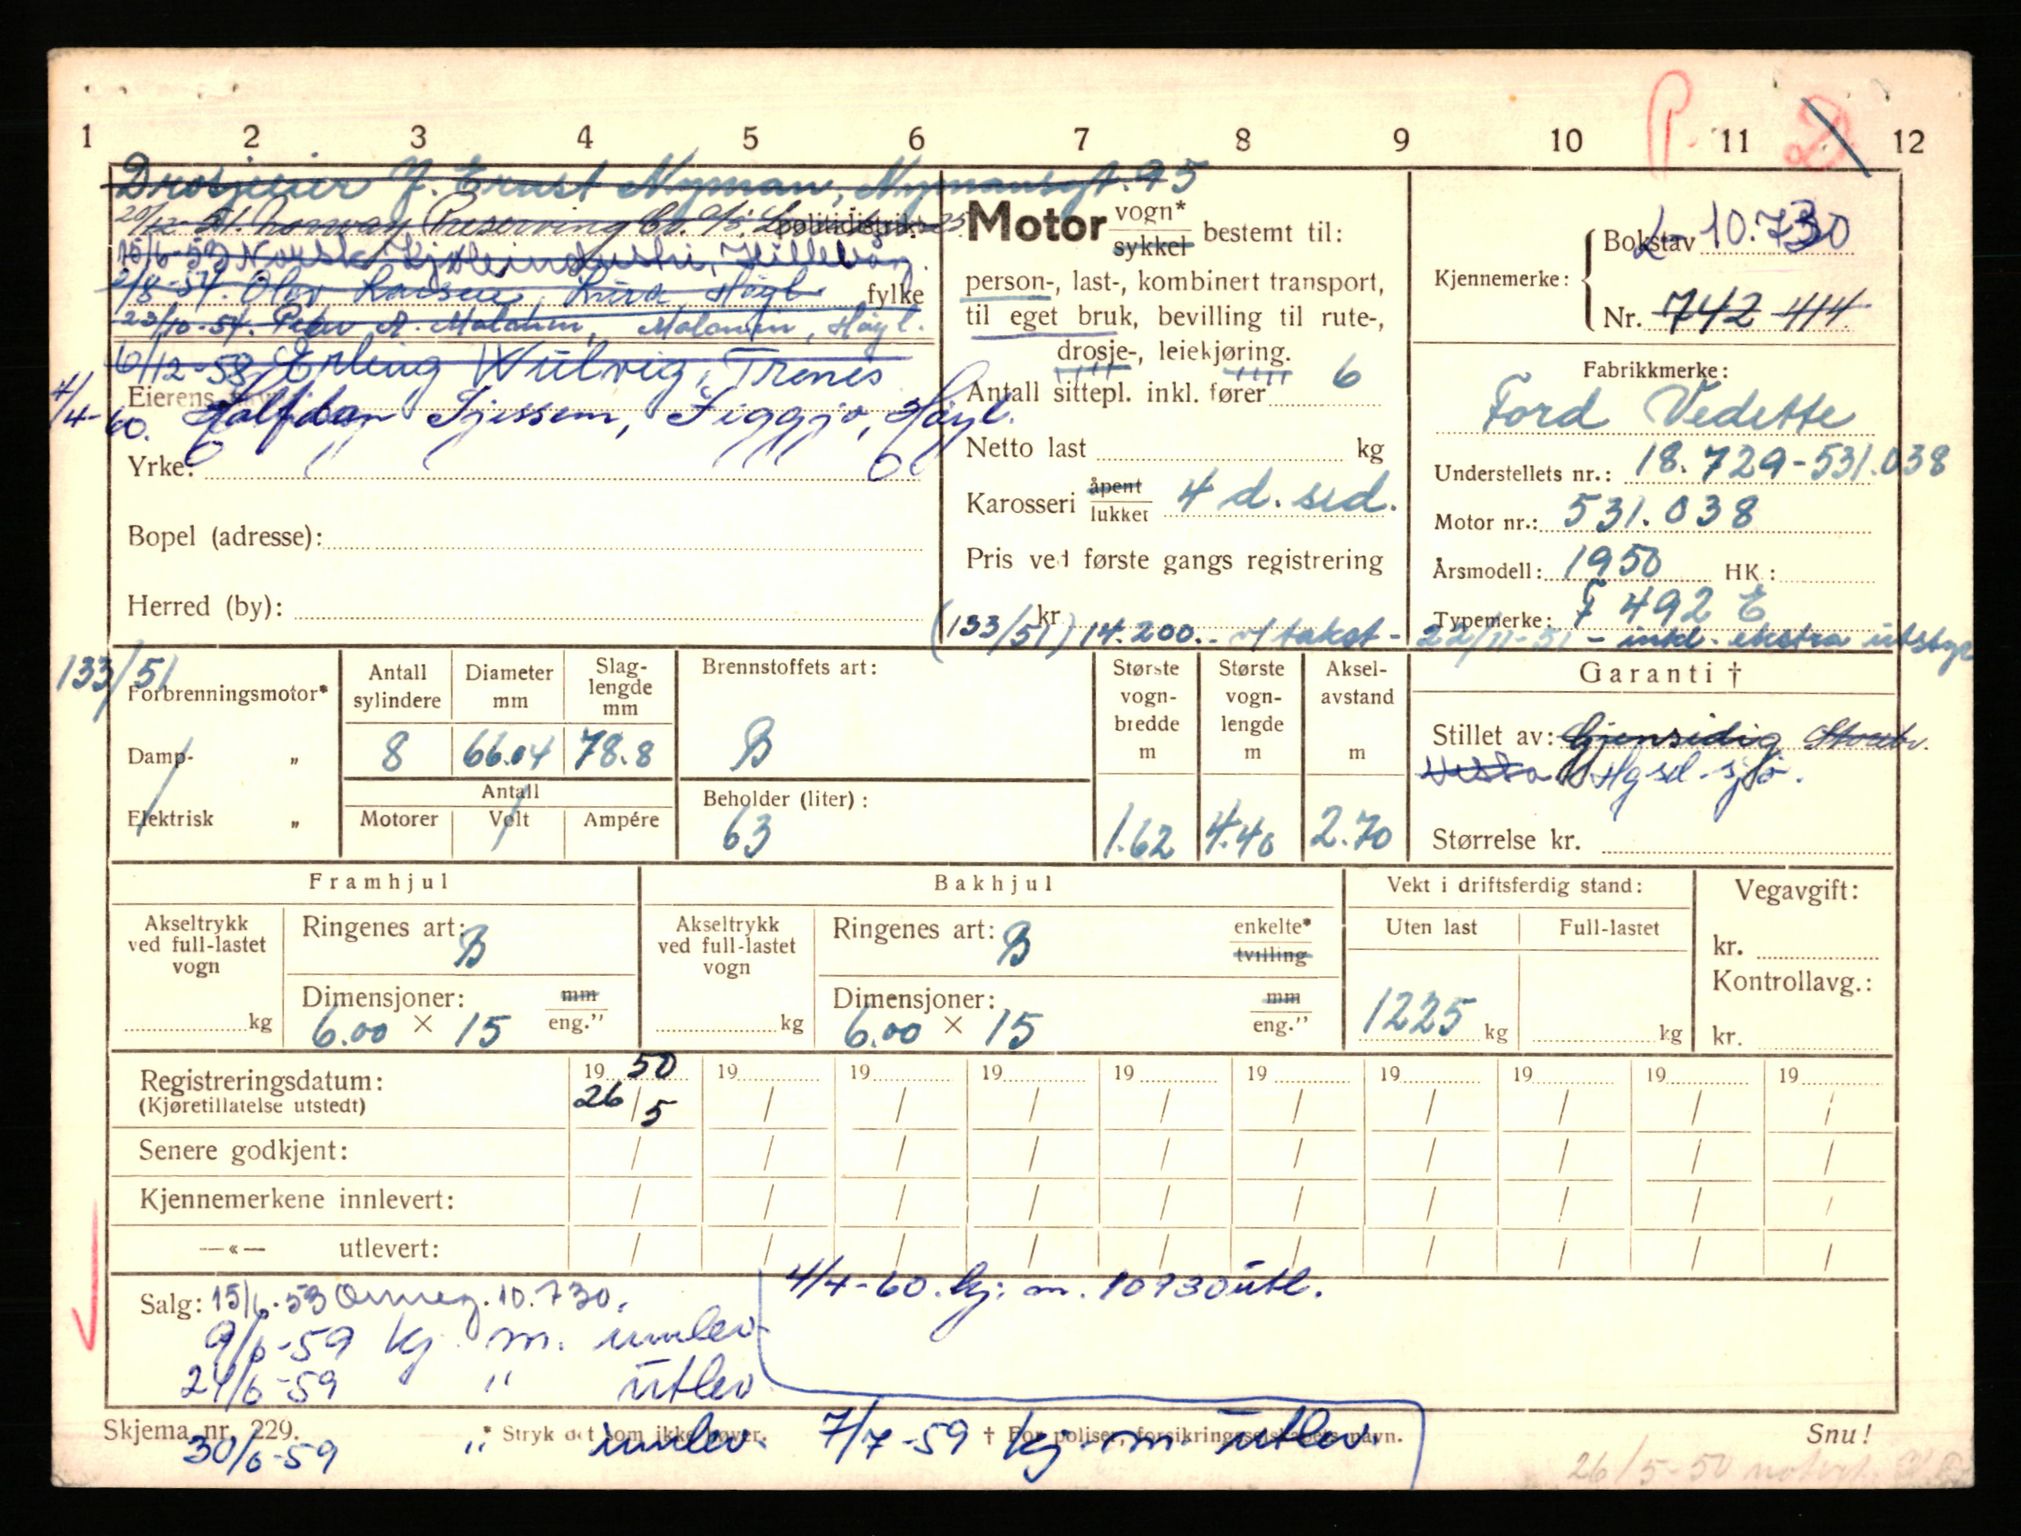 P. D
1 2 3 4 5 6 7 8 9 10 11 12
Drosjeeier J. Ernst Nyman, Nymansgt. 95
20/12-51. Norway Preserving Co. politidistrikt.
15/6-53 Norsk Kjoleindustri, Hillevåg.
2/8-54. Olav Larsen, Lura, Høyl. fylke
23/10-54. Peter A. Malmin, Malmin, Høyl.
6/12-58, Erling Wulvig, Tronis
Eierens
4/4-60. Halfdan Tjessem, Figgjo, Høyl.
Yrke:
Bopel (adresse):
Herred (by):
Motor vogn* sykkel bestemt til:
person-, last-, kombinert transport,
til eget bruk, bevilling til rute-,
drosje-, leiekjøring.
Antall sittepl. inkl. fører 6
Netto last kg
Karosseri åpent lukket 4 d. sed.
Pris ved første gangs registrering
kr
(133/51) 14.200.- v/ takst - 22/11-51 - inkl. ekstra utstyr
Kjennemerke: Bokstav L-10.730
Nr. 742 414
Fabrikkmerke:
Ford Vedette
Understellets nr.: 18.729-531.038
Motor nr.: 531.038
Årsmodell: 1950 HK:
Typemerke: F 492 E
133/51
Forbrenningsmotor*
Damp- „
Elektrisk „
Antall sylindere 8
Diameter mm 66.04
Slag-lengde mm 78.8
Antall
Motorer Volt Ampére
Brennstoffets art:
B
Beholder (liter):
63
Største vogn-bredde m 1.62
Største vogn-lengde m 4.40
Aksel-avstand m 2.70
Garanti †
Stillet av: Gjensidig Storebr.
Vesta Hgsd-sjø.
Størrelse kr.
Framhjul
Akseltrykk ved full-lastet vogn
kg
Ringenes art: B
Dimensjoner: mm eng.”
6.00 × 15
Bakhjul
Akseltrykk ved full-lastet vogn
kg
Ringenes art: B enkelte* tvilling
Dimensjoner: mm eng.”
6.00 × 15
Vekt i driftsferdig stand:
Uten last Full-lastet
1225 kg kg
Vegavgift:
kr.
Kontrollavg.:
kr.
Registreringsdatum: 19 50 19 19 19 19 19 19 19 19 19
(Kjøretillatelse utstedt) 26/5 / / / / / / / / /
Senere godkjent: / / / / / / / / / /
Kjennemerkene innlevert: / / / / / / / / / /
—«— utlevert: / / / / / / / / / /
Salg: 15/6-53 Omreg. 10.730.
9/6-59 kj. m. innlev
24/6-59 " utlev
30/6-59 " innlev. 7/7-59 kj. m. utlev.
4/4-60. kj. m. 10730 utl.
Skjema nr. 229. * Stryk det som ikke høver. † For poliser, forsikringsselskapets navn. Snu!
26/5-50 notert.